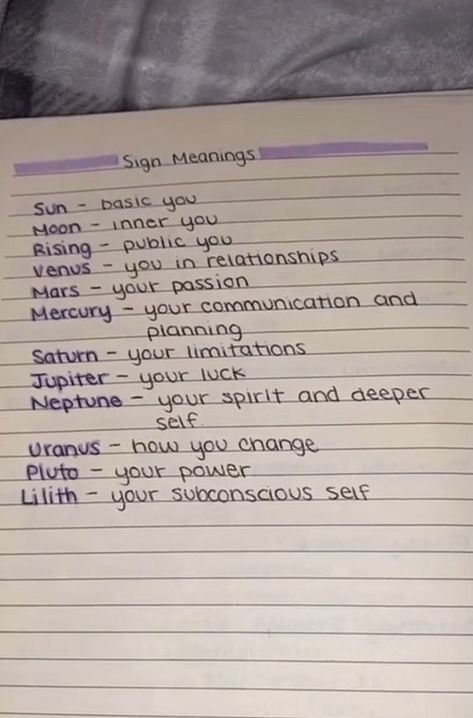 Sign Meanings
Sun - basic you
Moon - inner you
Rising - public you
Venus - you in relationships
Mars - your passion
Mercury - your communication and
planning
Saturn - your limitations
Jupiter - your luck
Neptune - your spirit and deeper
self
Uranus - how you change
Pluto - your power
Lilith - your subconscious self